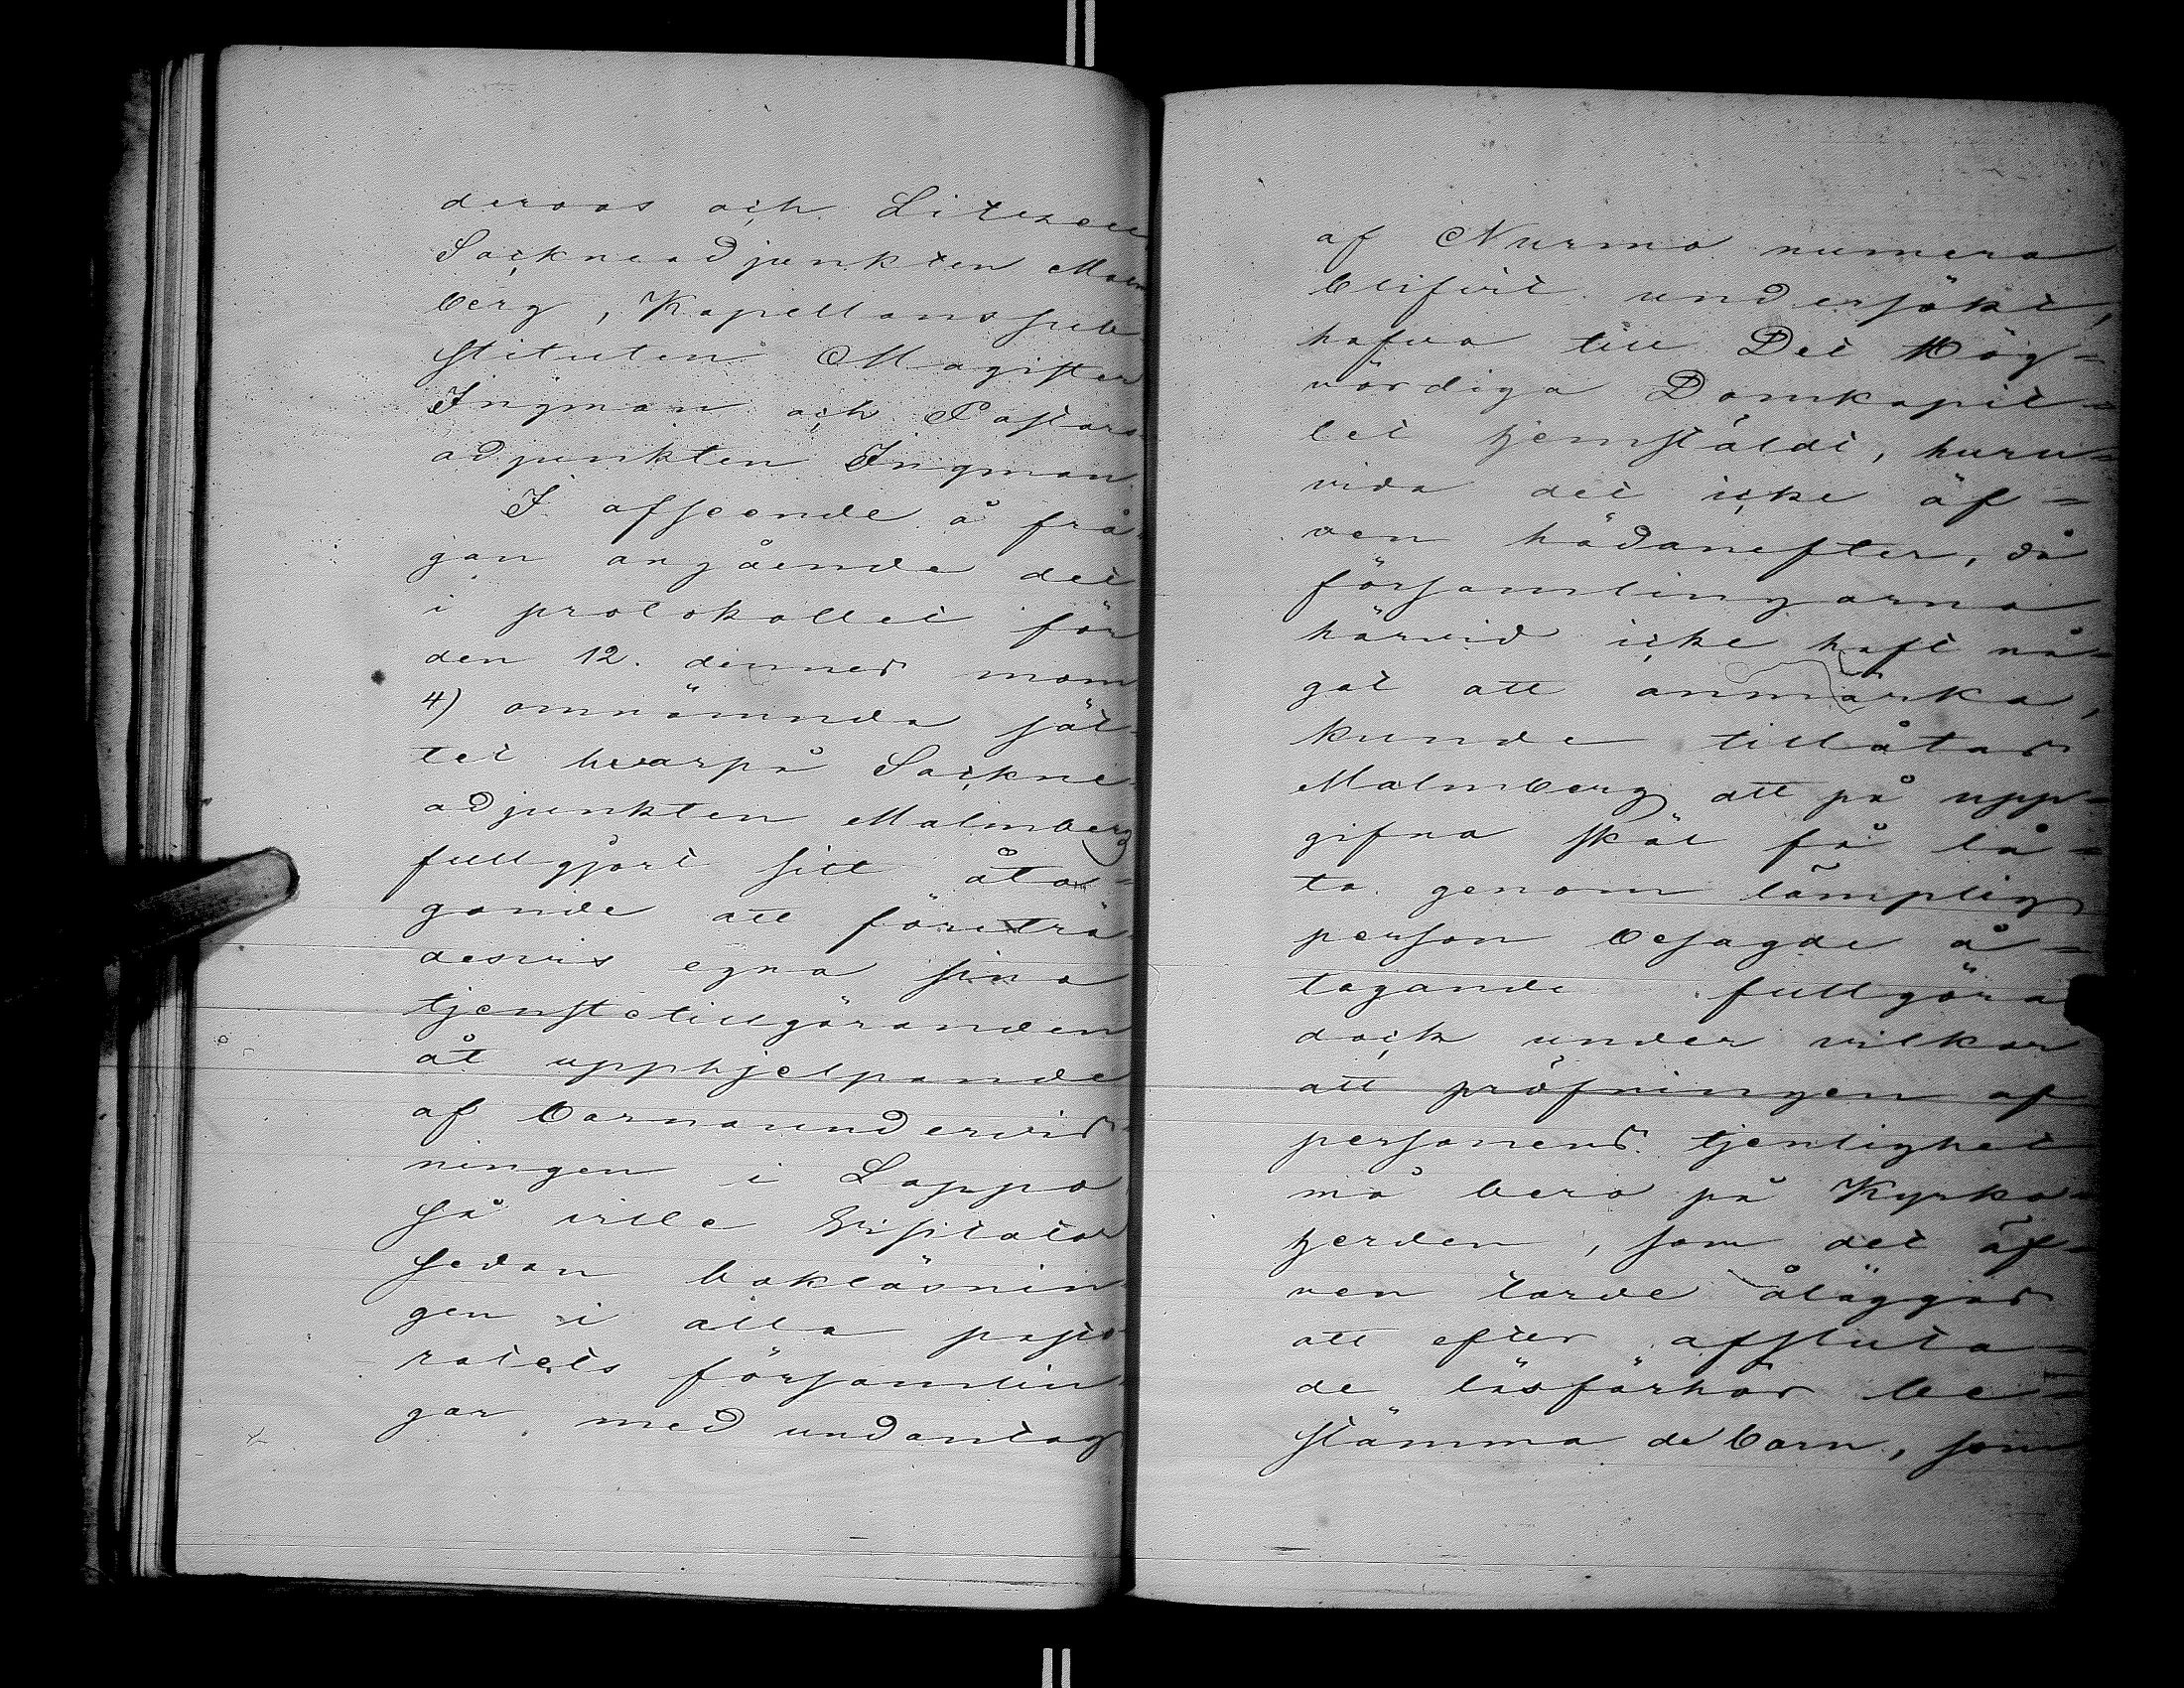 deroos och Litzen
Sockneadjunkten Malm
berg, Kapellanssub
stituten Magister
Ingman och Pastors
adjunkten Ingman.
I afseende å frå
gan angående det
i protokollet för
den 12. dennes mom
4) omnämnda sät-
tet hvarpå Sockne
adjunkten Malmberg
fullgjort sitt åta-
gande att företrä
desvis egna sina
tjensteåligganden
åt upphjelpande
af barnaundervis
ningen i Lappo
så ville Visitator
sedan bokläsnin
gen i alla pasto
ratets församlin
gar, med undantag
af Nurmo numera
blifvit undersökt,
hafva till Det Hög-
vördiga Domkapit-
let hemstäldt, huru-
vida det icke äf-
ven hädanefter, då
församlingarna
härvid icke haft nå-
got att anmärka,
kunde tillåtas
Malmberg att på upp-
gifna skäl få lå-
ta genom lämplig
person besagde å-
tagande fullgöra
dock under vilkor
att pröfningen af
personens tjenlighet
må bero på Kyrko-
herden, som det äf-
ven torde åläggas
att efter afsluta-
de läsförhör be-
stämma de barn, som